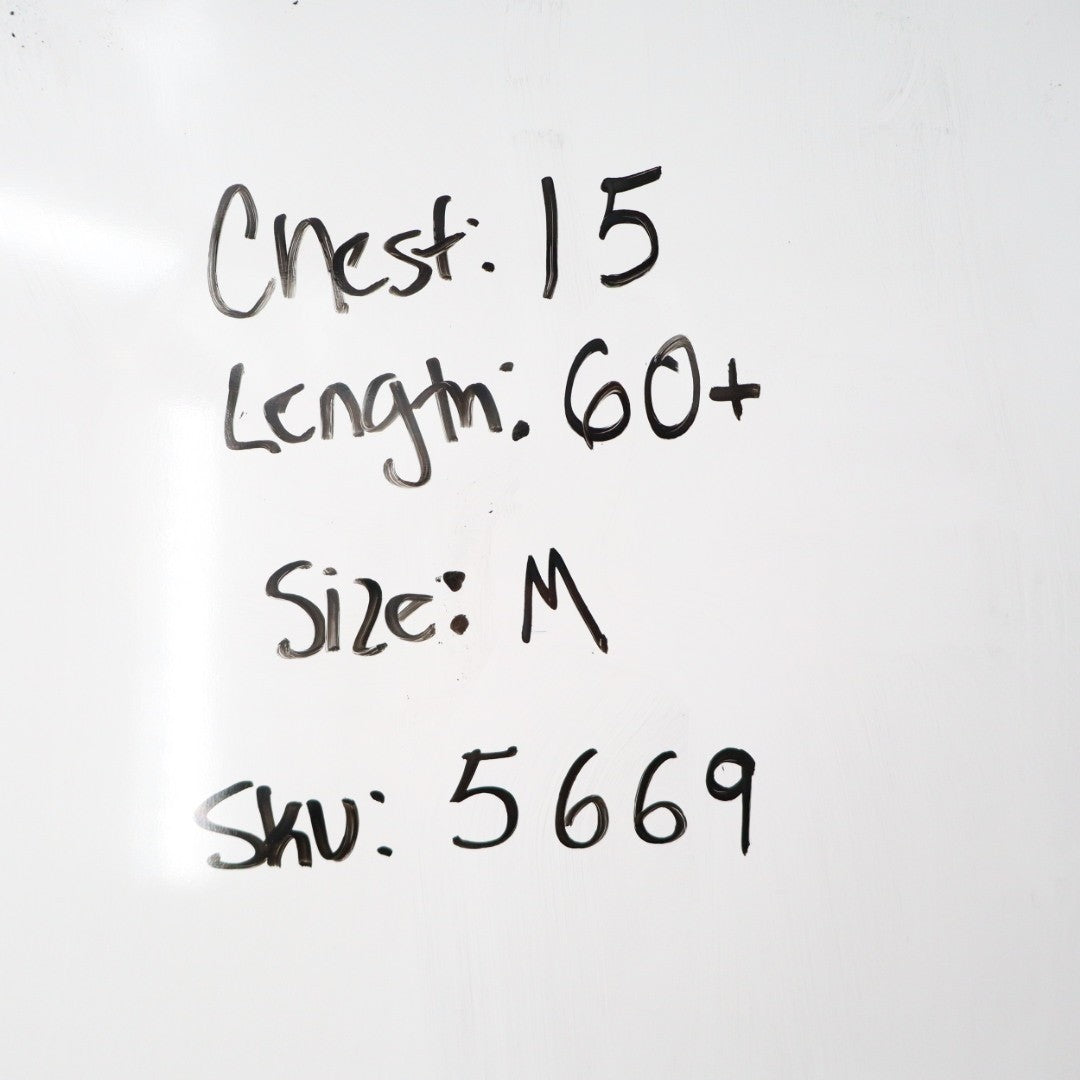 Chest: 15
Length: 60+
Size: M
Sku: 5669